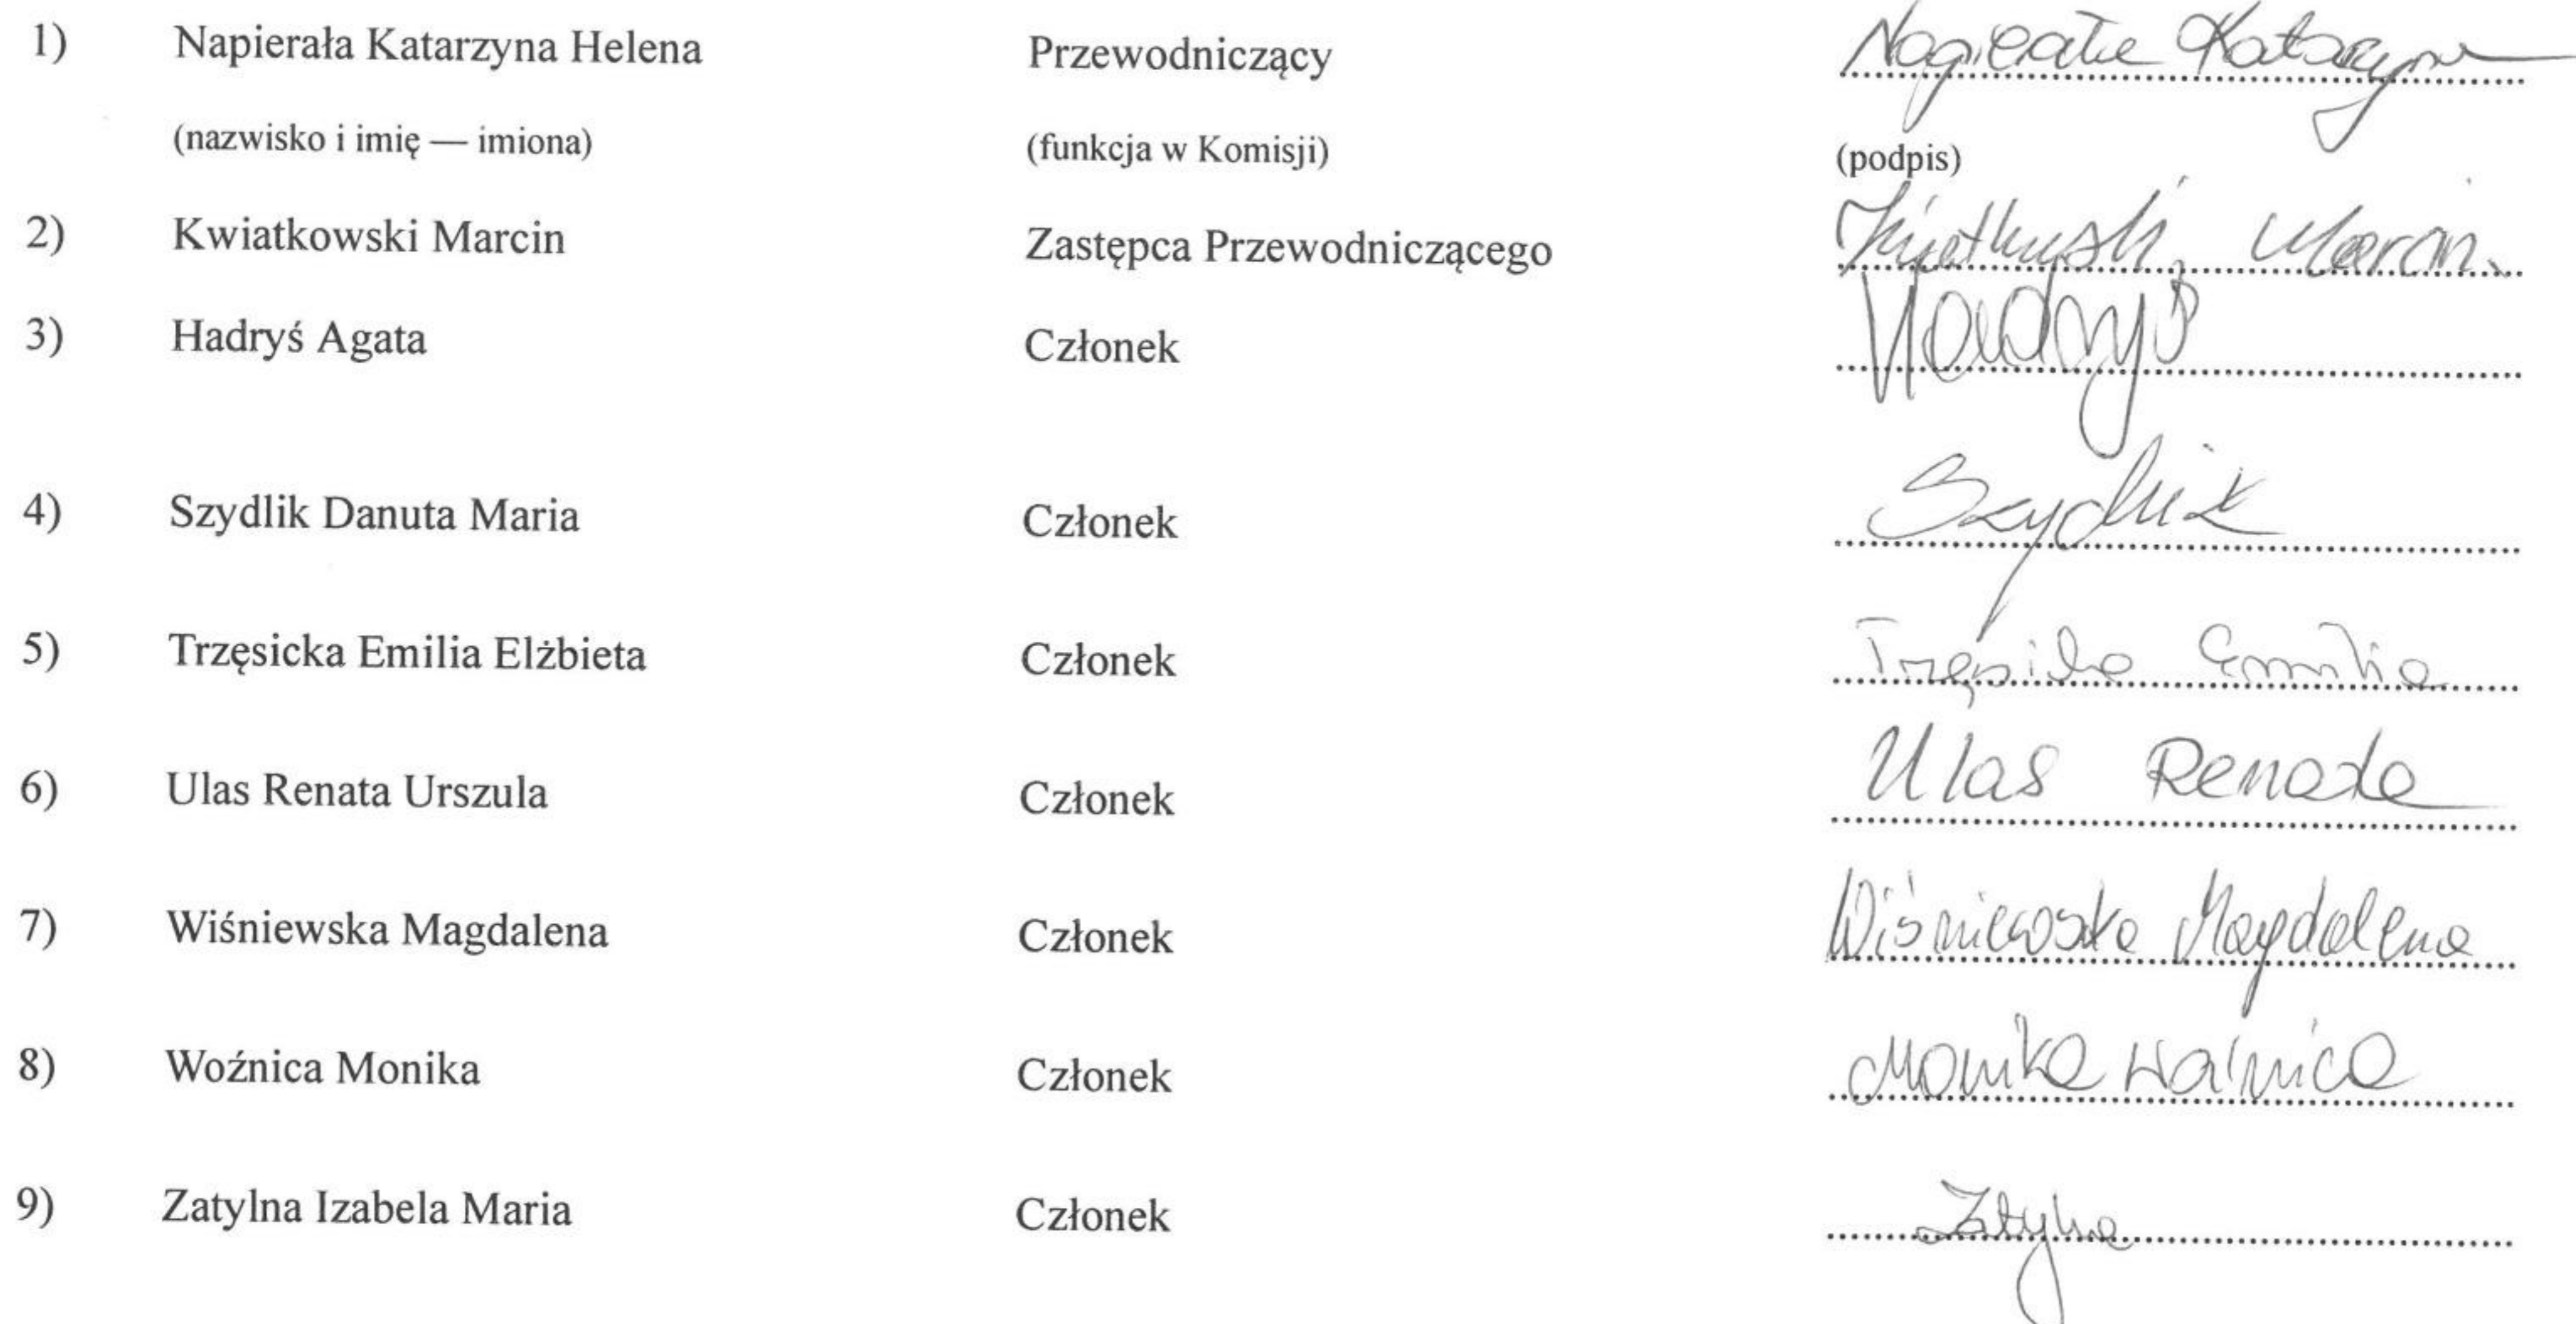 1) Napierała Katarzyna Helena Przewodniczący Napierała Katarzyna
(nazwisko i imię — imiona) (funkcja w Komisji) (podpis)
2) Kwiatkowski Marcin Zastępca Przewodniczącego Kwiatkowski Marcin
3) Hadryś Agata Członek Hadryś
4) Szydlik Danuta Maria Członek Szydlik
5) Trzęsicka Emilia Elżbieta Członek Trzęsicka Emilia
6) Ulas Renata Urszula Członek Ulas Renata
7) Wiśniewska Magdalena Członek Wiśniewska Magdalena
8) Woźnica Monika Członek Monika Woźnica
9) Zatylna Izabela Maria Członek Zatylna